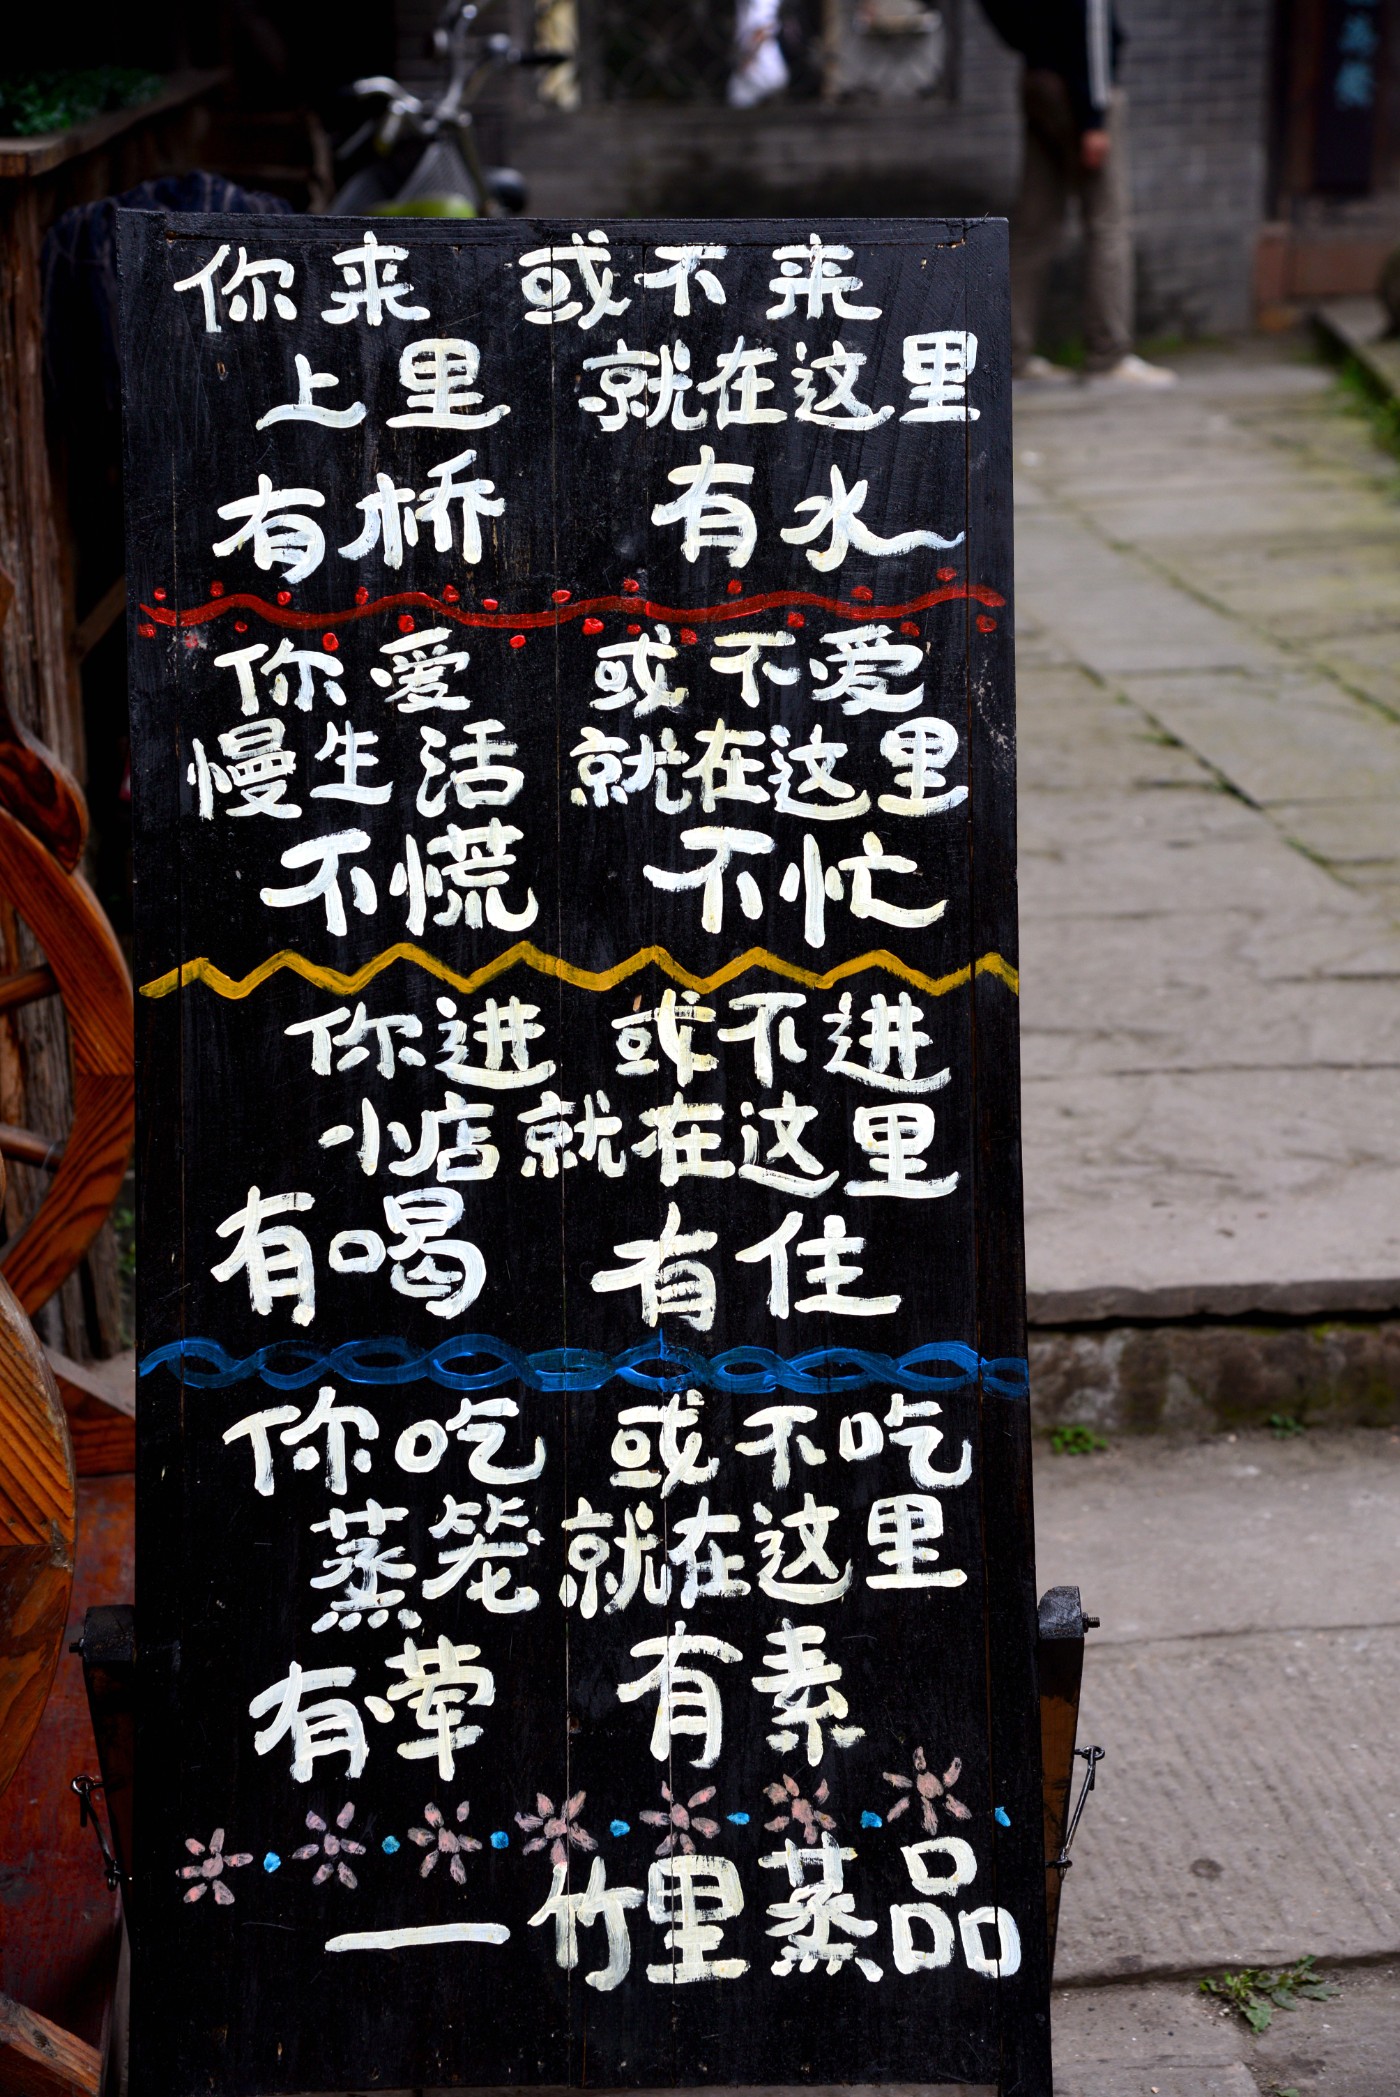 你来 或不来
上里 就在这里
有桥 有水
你爱 或不爱
慢生活 就在这里
不慌 不忙
你进 或不进
小店就在这里
有喝 有住
你吃 或不吃
蒸笼就在这里
有荤 有素
一竹里蒸品